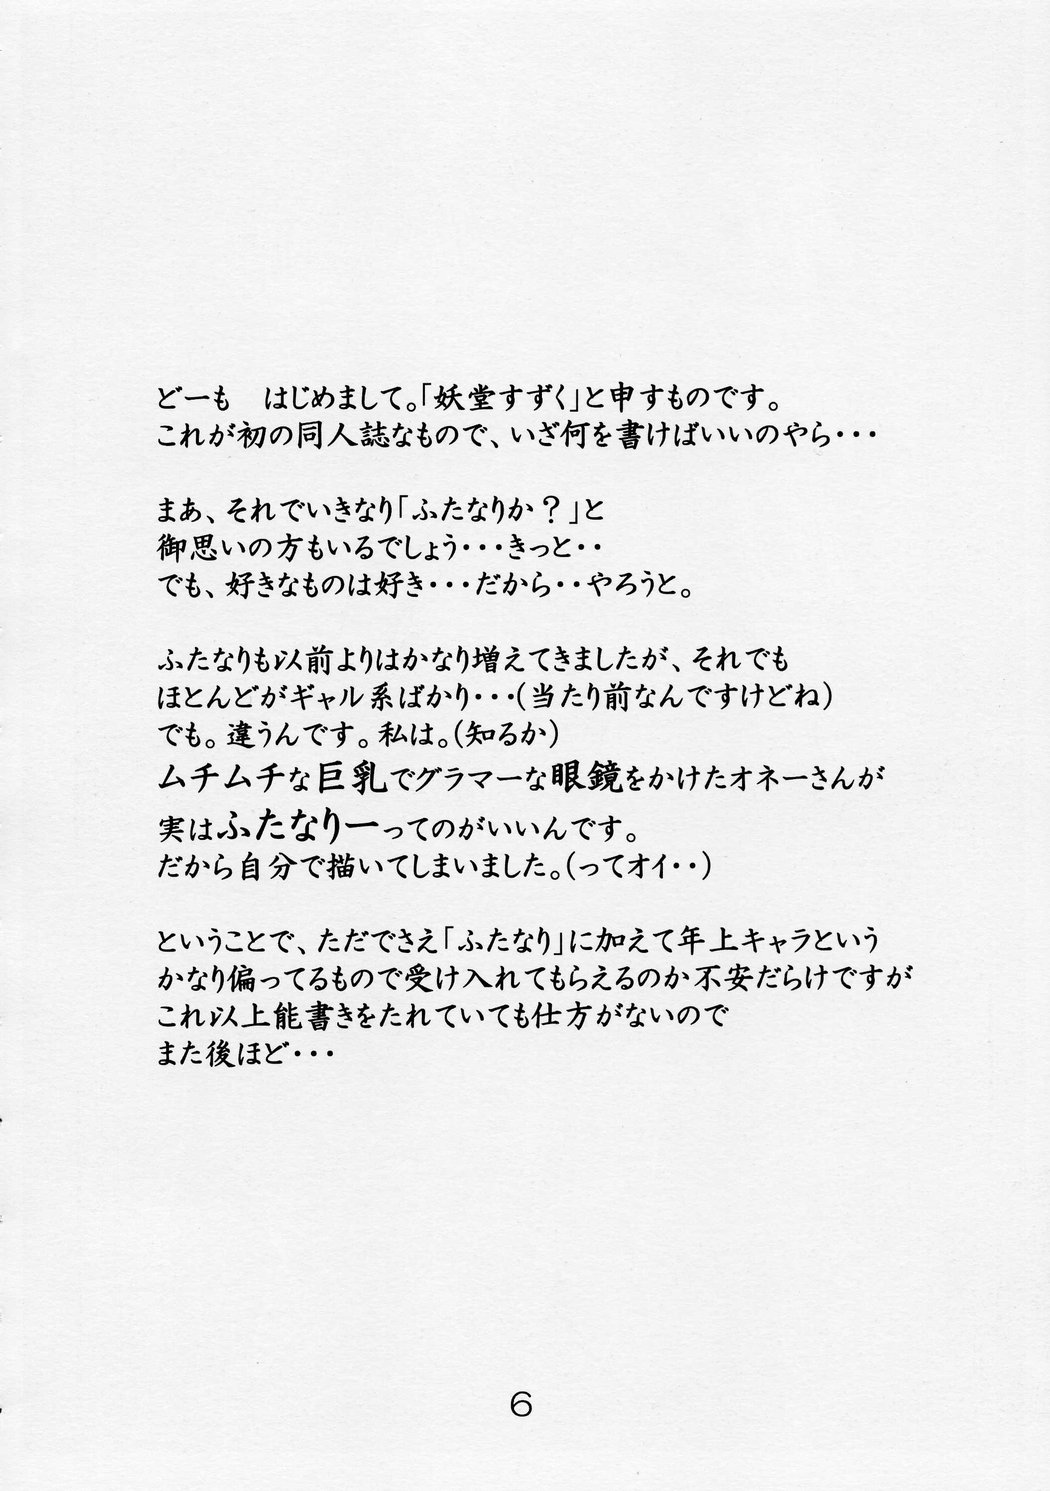 どーも　はじめまして。「妖堂すずく」と申すものです。
これが初の同人誌なもので、いざ何を書けばいいのやら・・・
まあ、それでいきなり「ふたなりか？」と
御思いの方もいるでしょう・・・きっと・・
でも、好きなものは好き・・・だから・・やろうと。
ふたなりも以前よりはかなり増えてきましたが、それでも
ほとんどがギャル系ばかり・・・(当たり前なんですけどね)
でも。違うんです。私は。(知るか)
ムチムチな巨乳でグラマーな眼鏡をかけたオネーさんが
実はふたなりーってのがいいんです。
だから自分で描いてしまいました。(ってオイ・・)
ということで、ただでさえ「ふたなり」に加えて年上キャラという
かなり偏ってるもので受け入れてもらえるのか不安だらけですが
これ以上能書きをたれていても仕方がないので
また後ほど・・・
6